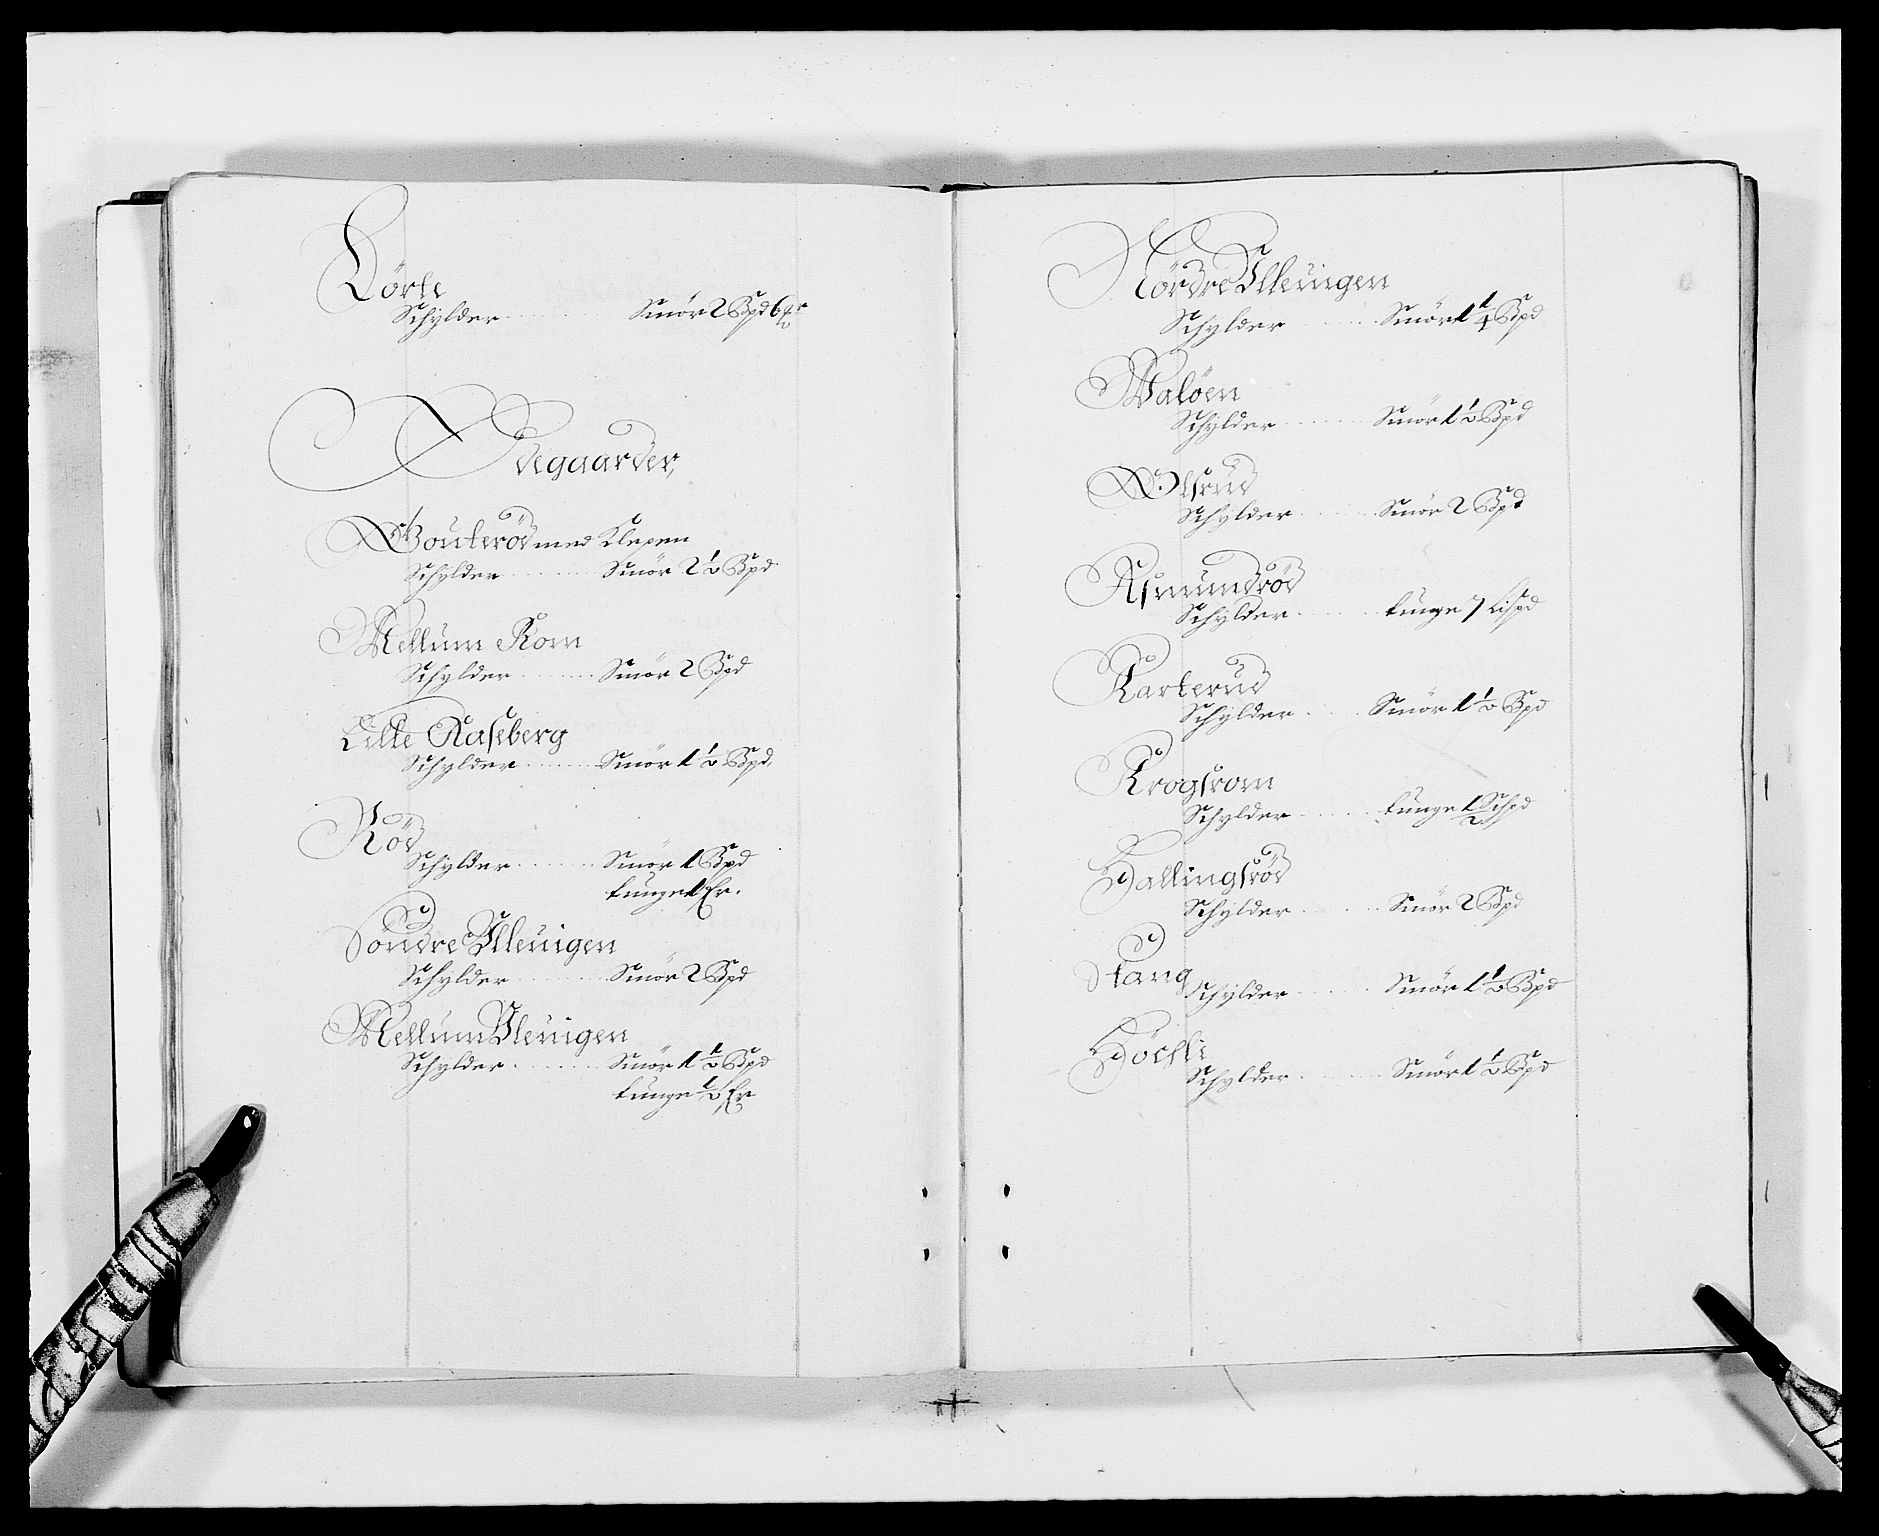 Lörte
Schylder Smör 2 Bpd 6
Ödegaarder,
Gouterød med Klepen
Schylder Smör 2 1/2 Bpd
Mellum Kom
Schylder Smör 2 Bpd
Lille Aaseberg
Schylder Smör 1 1/2 Bpd,
Röd
Schylder Smör 1 Bpd
tunge 1 Fr.
Söndre Illeuigen
Schylder Smör 2 Bpd
Mellum Illeuigen
Schylder Smör 1 1/2 Bpd
tunge 1/2 Fr
Nördre Illeuigen
Schylder Smör 1 1/4 Bpd
Walöen
Schylder Smör 1 1/2 Bpd
Olsrud
Schylder Smör 2 Bpd
Asmundröd
Schylder tunge 7 Lispd
Karterud
Schylder Smör 1 1/2 Bpd
Krogsrom
Schylder tunge 1/2 Schpd
Hallingsröd
Schylder Smör 2 Bpd
Stang
Schylder Smör 1 1/2 Bpd
Höchli
Schylder Smör 1 1/2 Bpd